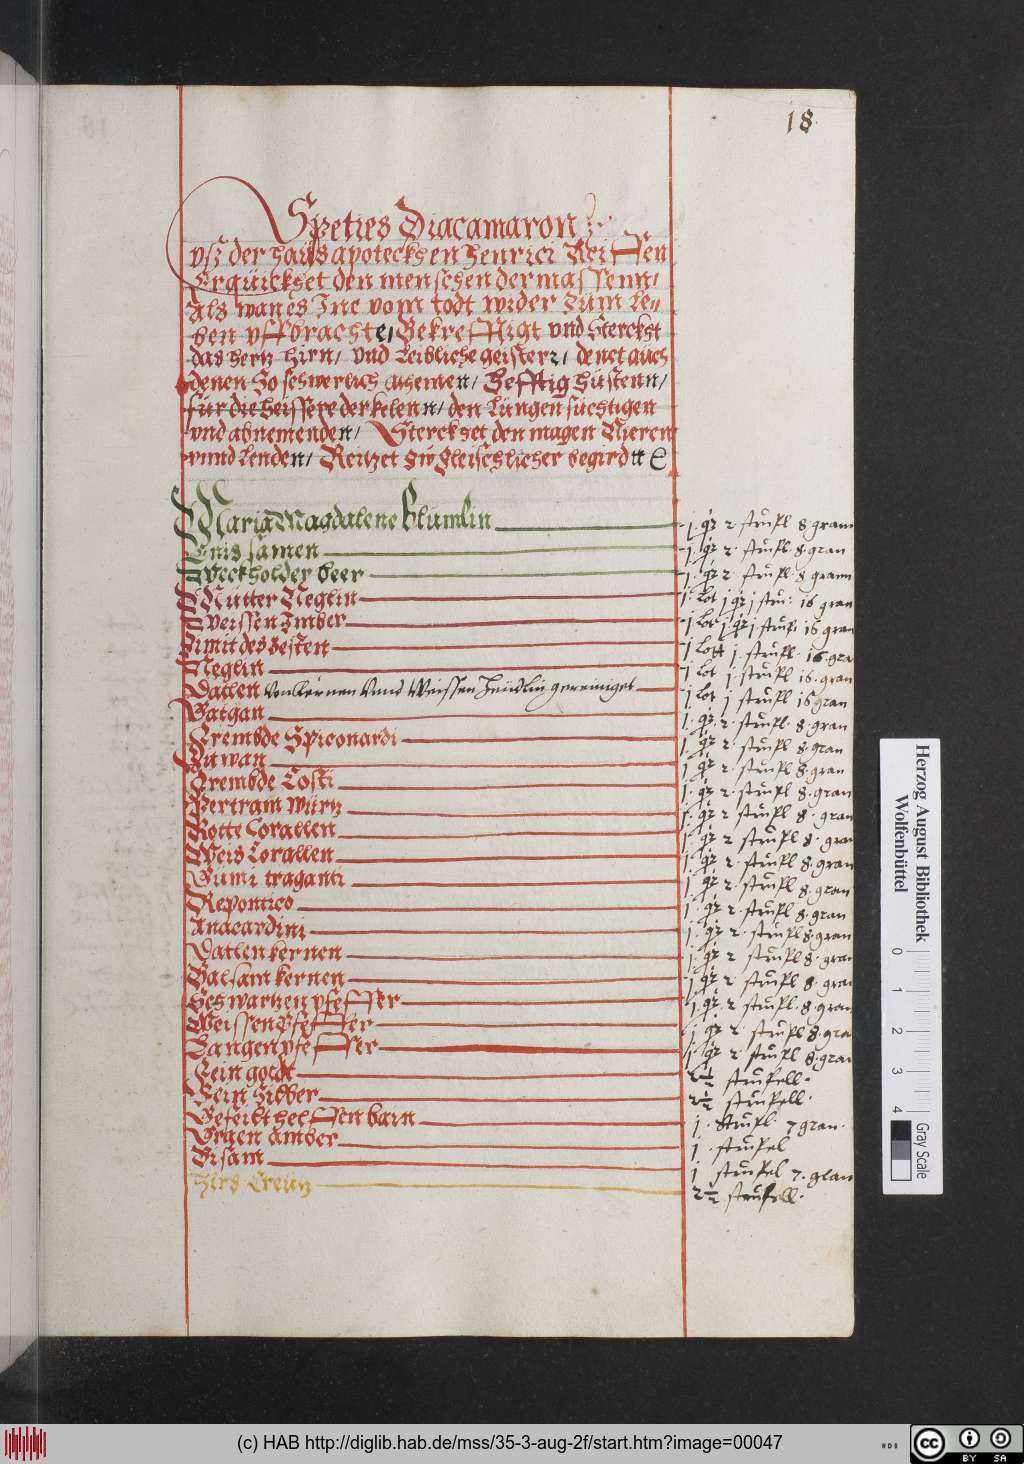 18
Speties Diacamaron
vſz der haus apotecksen Henrici Reiffen
Erquickhet den menschen dermassenn/
Als wan es Ine vom todt wider zum Le„
ben vffbrachte/ Bekrefftigt vnd Sterckht
das hertz Hirn/ vnd Leibliche geister/ denet auch
denen So schwerlich Athemen/ Hefftig Hustenn/
für die heissere der kelenn/ den Lungensüchtigen
vnd abnemenden/ Sterckhet den magen Nieren
vnnd Lenden/ Reitzet zw fleischlicher begird
Maria Magdalene blumlin 1. qr 2 strupl 8 gram
Enis samen 1. qr 2. strupl. 8. gran
Weckholder beer 1. qr 2 strupl. 8 gram
Mutter Neglin 1. Lot 1 qr 1 stru: 16 gran
Weissen Imber 1 Lot 1. qr 1 strup. 16 gran
Zimit des besten 1 Lott 1. strupl. 16. gra
Neglin 1 Lot 1. strupl 16. gran
Datlen von kernen vnnd Weissen heudlin gereiniget 1 Lot 1 strupl 16 gran
Galgan 1. qr. 2. strupl. 8. gran
Frembde Spiconardi 1. qr 2. strupl 8. gran
Zitwan 1 qr 2. strupl 8. gran
Frembde Costi 1. qr 2. strupl 8. gran
Bertram Wurtz 1. qr 2 strupl 8. gran
Rotte Corallen 1. qr 2 strupl 8. gran
Weis Corallen 1. qr 2. strupl 8. gran
Gumi traganti 1 qr 2. strupl 8. gran
Repontico 1. qr 2. strupl 8. gran
Anacardini 1. qr 2. strupl 8. gran
Datlen kernen 1. qr 2 strupl 8. gran
Balsam kernen 1. qr 2 strupl 8. gran
Schwartzen pfeffer 1. qr. 2 strupl. 8. gran
Weissen Pfeffer 1 qr 2. strupl 8. gra
Langen pfeffer 1 qr 2. strupl 8. gran
Fein goldt 2½ strupell.
Fein Silber 2½ strupell.
Gefeilt helffenbain 1. Strupl. 7 gran.
Amber 1. strupel
Bisam 1 strupel 7. gran
Hirs Creutz 2½ strupell.
Herzog August Bibliothek
Wolfenbüttel
0 1 2 3 4
Gray Scale
(c) HAB http://diglib.hab.de/mss/35-3-aug-2f/start.htm?image=00047
cc BY SA